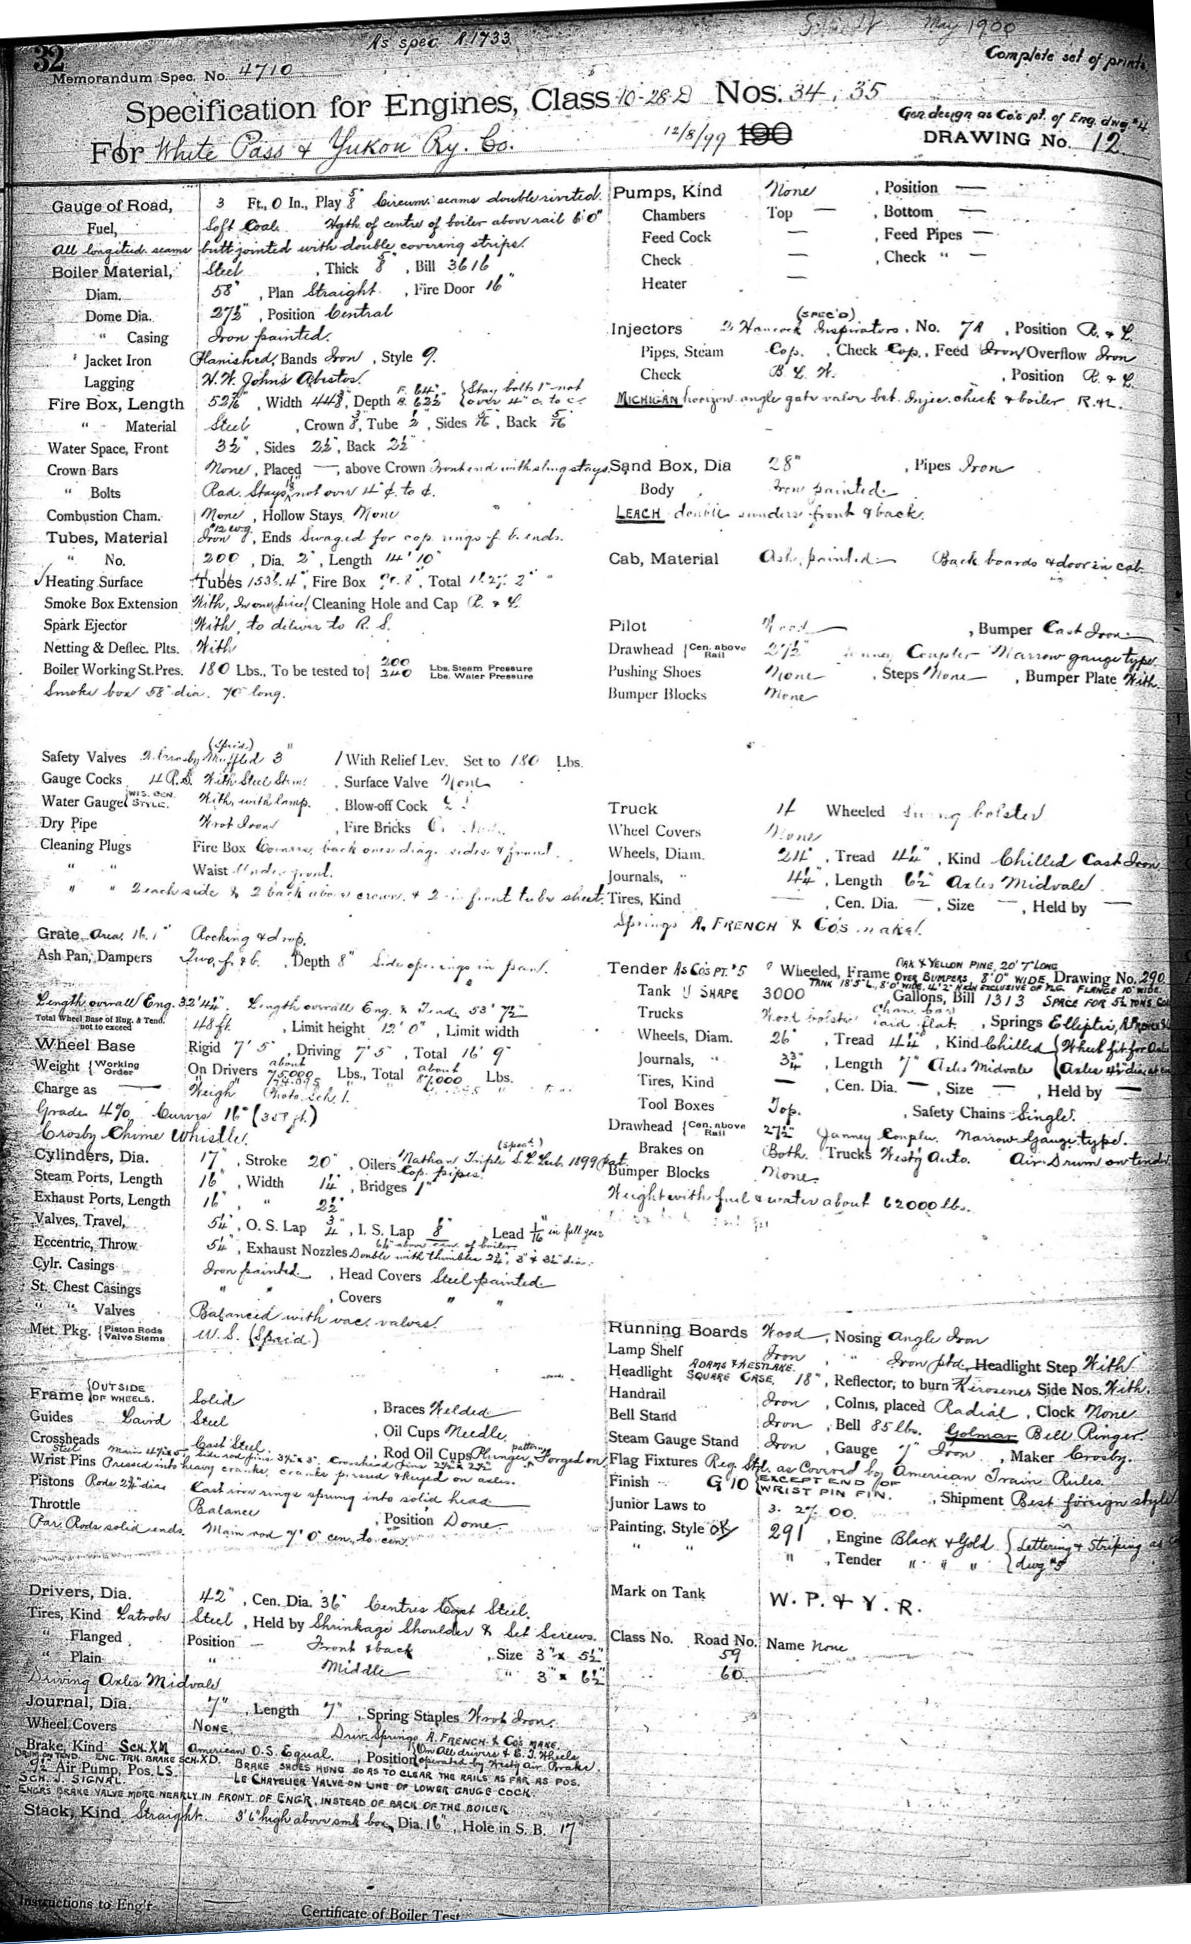 32
As spec A.1733
May 1900
Complete set of prints
Memorandum Spec. No. 4710
Specification for Engines, Class 10-28-D Nos. 34, 35
Gen. design as Co's pt. of Eng. dwg #4
For White Pass & Yukon Ry. Co. 12/8/99 190
DRAWING No. 12
Gauge of Road, 3 Ft., 0 In., Play 5/8" Circum. seams double riveted.
Fuel, Soft Coal. Hgth. of centre of boiler above rail 6'0"
All longitud. seams butt jointed with double covering strips.
Boiler Material, Steel, Thick 5/8", Bill 3616
Diam. 58", Plan Straight, Fire Door 16"
Dome Dia. 27 1/2", Position Central
" Casing Iron painted.
" Jacket Iron Planished, Bands Iron, Style 9.
Lagging H. W. Johns Abestos.
Fire Box, Length 52 7/16", Width 44 3/8", Depth F. 64" B. 62 1/2" { Stay bolts 1" not over 4" c. to c.
" Material Steel, Crown 3/8", Tube 1/2", Sides 5/16", Back 5/16"
Water Space, Front 3 1/2", Sides 2 1/2", Back 2 1/2"
Crown Bars None, Placed —, above Crown Front end with sling stays.
" Bolts Rad. Stays 1 1/8" not over 4" c. to c.
Combustion Cham. None, Hollow Stays None
Tubes, Material Iron #12 w.g., Ends Swaged for cop. rings f. b. ends.
" No. 200, Dia. 2", Length 14' 10"
Heating Surface Tubes 1536.4", Fire Box, Total
Smoke Box Extension With, In one piece, Cleaning Hole and Cap R. & L.
Spark Ejector With, to deliver to R. S.
Netting & Deflec. Plts. With
Boiler Working St. Pres. 180 Lbs., To be tested to { 200 Lbs. Steam Pressure 240 Lbs. Water Pressure
Smoke box 58" dia. 70" long.
Safety Valves 2. Crosby (Spec'd.) Muffled 3" 1 With Relief Lev. Set to 180 Lbs.
Gauge Cocks 4 R.S. With Steel Stem, Surface Valve None
Water Gauge WIS. CEN. STYLE. With, with lamp., Blow-off Cock
Dry Pipe Wrot Iron, Fire Bricks
Cleaning Plugs Fire Box Corners, back ones diag. sides & front.
" " Waist Under front.
" " 2 each side & 2 back above crown, & 2 in front tube sheet.
Grate Area, 16.1" Rocking & drop.
Ash Pan, Dampers Two, f. & b., Depth 8" Side openings in pan.
Length overall Eng. 32' 4 1/2". Length overall Eng. & Tend. 53' 7 1/2"
Total Wheel Base of Eng. & Tend. not to exceed 48 ft, Limit height 12' 0", Limit width
Wheel Base Rigid 7' 5", Driving 7' 5", Total 16' 9"
Weight { Working Order On Drivers about 75000 Lbs., Total about 87,000 Lbs.
Charge as — Weigh Photo. Sch. 1.
Grade 4% Curves 16° (359 ft.)
Crosby Chime Whistle.
Cylinders, Dia. 17", Stroke 20", Oilers Nathan Triple S. L. Lub. 1899 pat. (Spec'd.) Cop. pipes.
Steam Ports, Length 16", Width 1 1/4", Bridges 1"
Exhaust Ports, Length 16" " 2 1/2"
Valves, Travel, 5 1/4", O. S. Lap 3/4", I. S. Lap 1/8", Lead 1/16" in full gear
Eccentric, Throw 5 1/4", Exhaust Nozzles Double with thimbles 2 3/4", 3" & 3 1/4" dia.
Cylr. Casings Iron painted, Head Covers Steel painted
St. Chest Casings " ", Covers " "
" " Valves Balanced with vac. valves.
Met. Pkg. { Piston Rods Valve Stems U. S. (Spec'd.)
Frame { OUTSIDE OF WHEELS. Solid, Braces Welded
Guides Laird Steel, Oil Cups Needle.
Crossheads Cast Steel., Rod Oil Cups Plunger pattern, Forged on
Wrist Pins Pressed into heavy cranks, cranks pressed & keyed on axles.
Pistons Rods 2 3/4" dia. Cast iron rings sprung into solid head
Throttle Balance, Position Dome.
Par. Rods solid ends. Main rod 7' 0" cen. to cen.
Drivers, Dia. 42", Cen. Dia. 36" Centres Cast Steel.
Tires, Kind Latrobe Steel, Held by Shrinkage Shoulder & Set Screws.
" Flanged Position — Front & back, Size 3" x 5 1/2"
" Plain " Middle " 3" x 6 1/2"
Driving Axles Midvale
Journal, Dia. 7", Length 7", Spring Staples Wrot Iron.
Wheel Covers NONE. Driv. Springs A. FRENCH & Co's MAKE.
Brake, Kind SCH. XM American O.S. Equal., Position { On All drivers & E. T. Wheels operated by Westg Air Brake.
DRUM ON TEND. ENG. TRK. BRAKE SCH. XD. BRAKE SHOES HUNG SO AS TO CLEAR THE RAILS AS FAR AS POS.
9 1/2" Air Pump, Pos. L.S.
SCH. J. SIGNAL. LE CHATELIER VALVE ON LINE OF LOWER GAUGE COCK.
ENGRS BRAKE VALVE MORE NEARLY IN FRONT OF ENG'R, INSTEAD OF BACK OF THE BOILER
Stack, Kind Straight. 3' 6" high above smk box, Dia. 16", Hole in S. B. 17"
Instructions to Eng'r —
Certificate of Boiler Test —
Pumps, Kind None, Position —
Chambers Top —, Bottom —
Feed Cock —, Feed Pipes —
Check —, Check " —
Heater —
Injectors 2. Hancock (SPEC'D) Inspirators, No. 7A, Position R. & L.
Pipes, Steam Cop., Check Cop., Feed Iron, Overflow Iron
Check B. L. W., Position R. & L.
MICHIGAN horizon. angle gate valve bet. Injec. check & boiler R. & L.
Sand Box, Dia 28", Pipes Iron
Body Iron painted
LEACH double sanders front & back.
Cab, Material Ash, painted — Back boards & door in cab
Pilot Wood, Bumper Cast Iron
Drawhead { Cen. above Rail 27 1/2" Janney Coupler Narrow gauge type
Pushing Shoes None, Steps None, Bumper Plate With
Bumper Blocks None
Truck 4 Wheeled Swing bolster
Wheel Covers None
Wheels, Diam. 24", Tread 4 1/4", Kind Chilled Cast Iron
Journals, " 4 1/4", Length 6 1/2" Axles Midvale
Tires, Kind —, Cen. Dia. —, Size —, Held by —
Springs A. FRENCH & Co's make.
Tender As Co's PT. #5 8 Wheeled, Frame OAK & YELLOW PINE, 20' 7" LONG OVER BUMPERS, 8' 0" WIDE Drawing No. 290
Tank U SHAPE 3000 Gallons, Bill 1313 SPACE FOR 5 1/2 TONS COAL
Trucks Wood bolster Chan. bar laid flat., Springs Elliptic,
Wheels, Diam. 26", Tread 4 1/4", Kind Chilled { Wheel fit for Axle
Journals, " 3 3/4", Length 7" Axles Midvale
Tires, Kind —, Cen. Dia. —, Size —, Held by —
Tool Boxes Top., Safety Chains Single.
Drawhead { Cen. above Rail 27 1/2" Janney Coupler. Narrow Gauge type.
Brakes on Both Trucks Westg Auto. Air Drum on tender
Bumper Blocks None
Weight with fuel & water about 62000 lbs.
Running Boards Wood, Nosing Angle Iron
Lamp Shelf Iron, " Iron ptd, Headlight Step With
Headlight ADAMS & WESTLAKE. SQUARE CASE. 18", Reflector, to burn Kerosene, Side Nos. With.
Handrail Iron, Colmns, placed Radial, Clock None
Bell Stand Iron, Bell 85 lbs. Golmar Bell Ringer
Steam Gauge Stand Iron, Gauge 7" Iron, Maker Crosby.
Flag Fixtures Reg. Stl. as Covered by American Train Rules.
Finish G 10 { EXCEPT END OF WRIST PIN FIN., Shipment Best foreign style
Junior Laws to 3. 2% 00.
Painting, Style OK 291, Engine Black & Gold { Lettering & Striping as Co
" " ", Tender " " " { dwg #5
Mark on Tank W. P. & Y. R.
Class No. Road No. 59 Name None
60